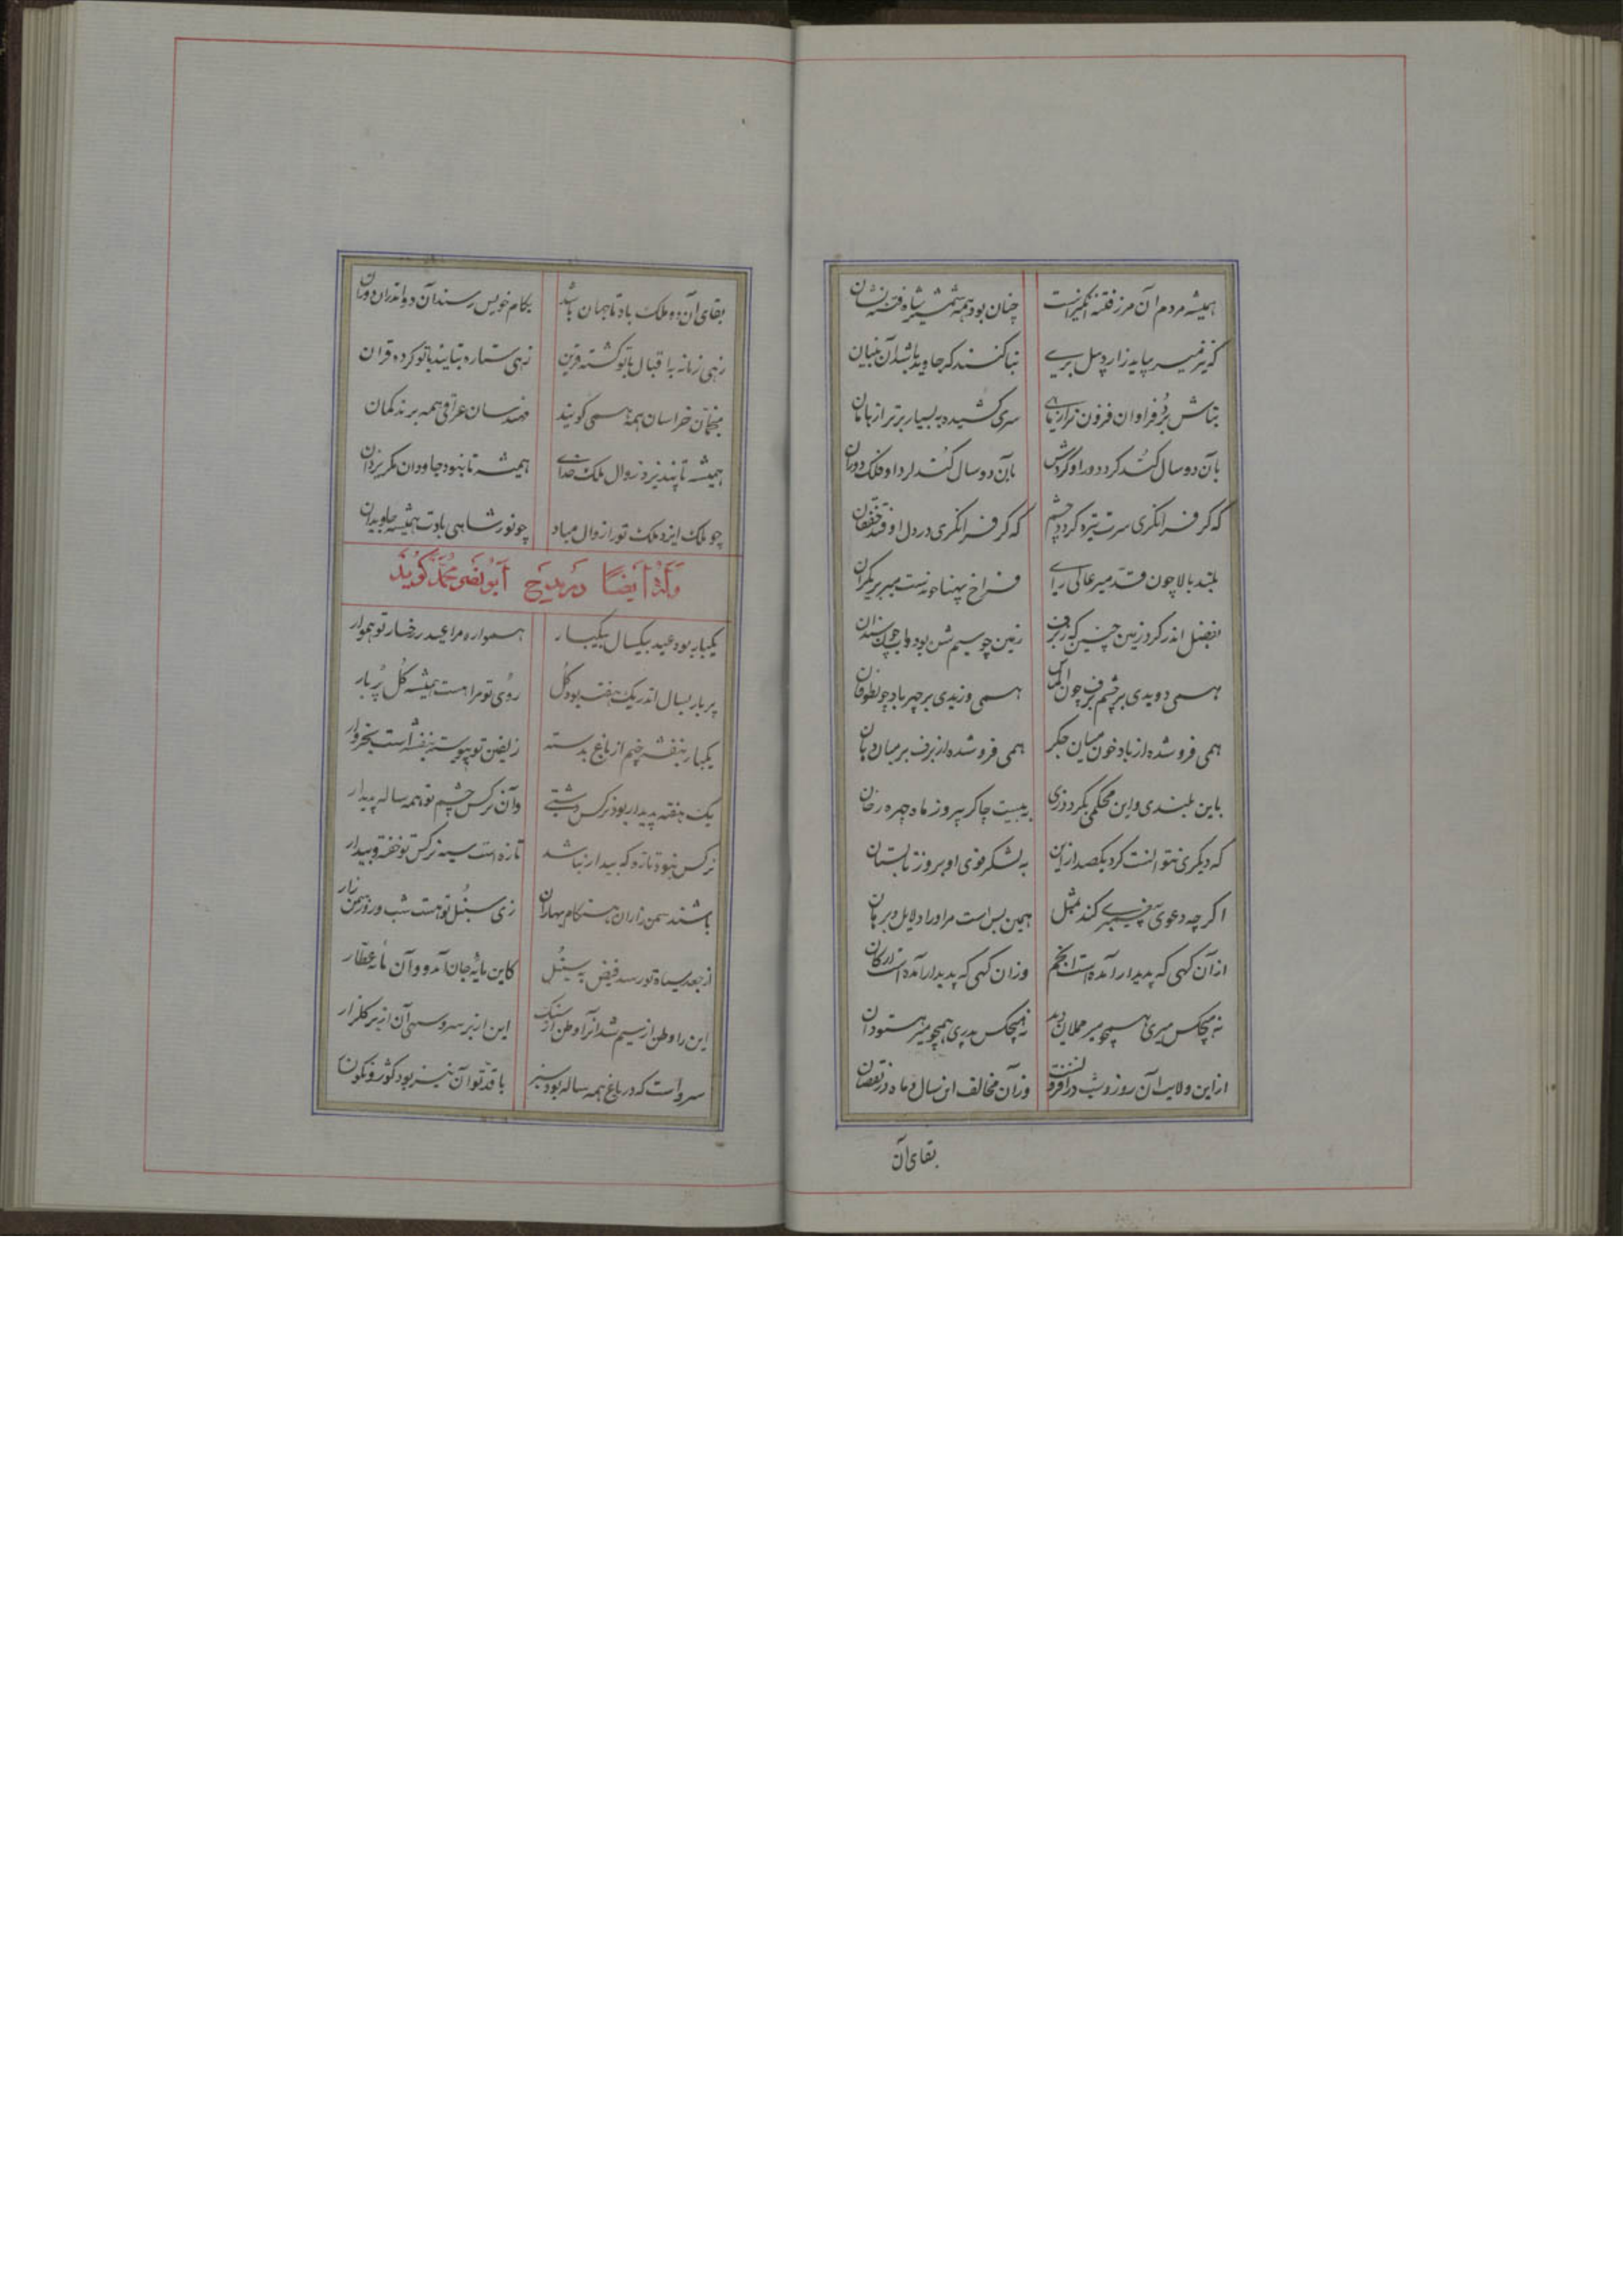 همیشه مردم آن مرز فتنه انگیز است چنان بود همه شمشیر شاه فتنه نشان
که زیر پایه زار پیل بری بنا کنند که جاوید باشد آن بنیان
بتاش برد فراوان فزون سری کشیده به بسیار برتر از
بآن دو سال کند کرد دور او گردش بآن دو سال کند کرد او فلک دوران
که گر فرانگری سرت تیره گردد چشم که گر فرانگری در دل اوفتد خفقان
بلند بالا چون قد میر عالی رای فراخ پهنا چو دست میر
بفضل اندر کرد زمین چنین که ز برف زمین چو سیم شن بود و آب چون سندان
همی دویدی بر چشم برف چون الماس همی وزیدی بر چهر باد چو طوفان
همی فرو شده از باد خون میان جگر همی فرو شده از برف بر میان دهان
باین بلندی و این محکمی بکرد دزی به بیست چاکر پیروز ماه چهره رخان
که دیگری نتوانست کرد یکصد ازین به لشکر قوی او بروز تابستان
اگر چه دعوی پیغمبری کند بمثل همین بس است مر او را دلایل و برهان
از آن کهی که پدیدار آمده است انجم وزان کهی که پدیدار آمده است ارکان
نه هیچکس میری همچو میر مملان دید نه هیچکس پدری همچو میر هستودان
از این ولایت آن روز و شب در افزونست وزان مخالف این سال و ماه در نقصان
بقای آن
بقای آن دو ملک باد تا جهان باشد بکام خویش رسند آن دو اندران دوران
زهی زمانه به اقبال با تو گشته قرین زهی ستاره بتایید با تو کرده قران
منجمان خراسان همه همی گویند مهندسان عراقی همه برند گمان
همیشه تا نپذیرد زوال ملک خدای همیشه تا نبود جاودان مگر یزدان
چو ملک ایزد ملک تو را زوال مباد چو نور شاهی بادت همیشه جاویدان
وله ایضا در مدیح ابونصر محمد گوید
یکبار بود عید بیکسال بیکبار همواره مرا عید ز رخسار تو هموار
پر بار بسال اندر یک هفته بود گل روی تو مرا هست همیشه گل پر بار
یکبار بنفشه چنم از باغ بدسته زلفین تو پیوسته بنفشه است بخروار
یک هفته پدیدار بود نرگس دشتی وآن نرگس چشم تو همه ساله پدیدار
نرگس نبود تازه که بیدار نباشد تازه است سیه نرگس تو خفته و بیدار
باشند سمن زاران هنگام بهاران زی سنبل تو هست شب و روز سمن زار
از جعد سیاه تو رسد فیض به سنبل کاین مایه جان آمد و آن مایه عطار
این را وطن از سیم شد آنرا وطن از سنگ این از بر سرو سهی آن از بر گلزار
سرو است که در باغ همه ساله بود سبز با قد تو آن نیز بود کوژ و نگون